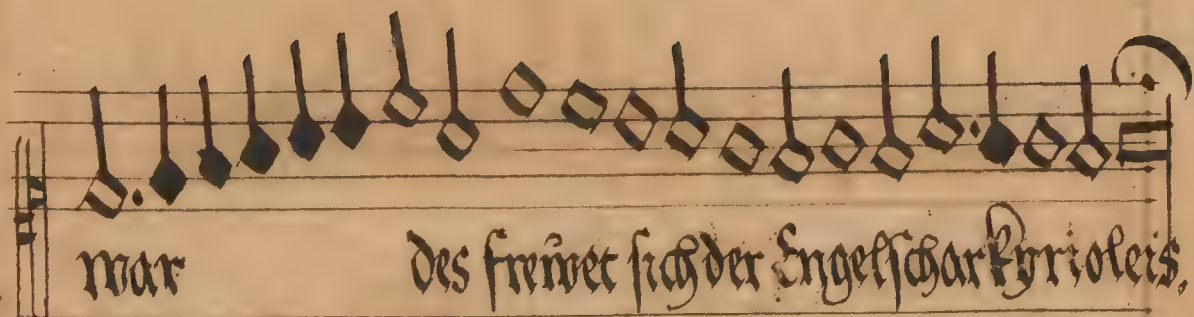 war des frewet sich der Engel schar kyrioleis,